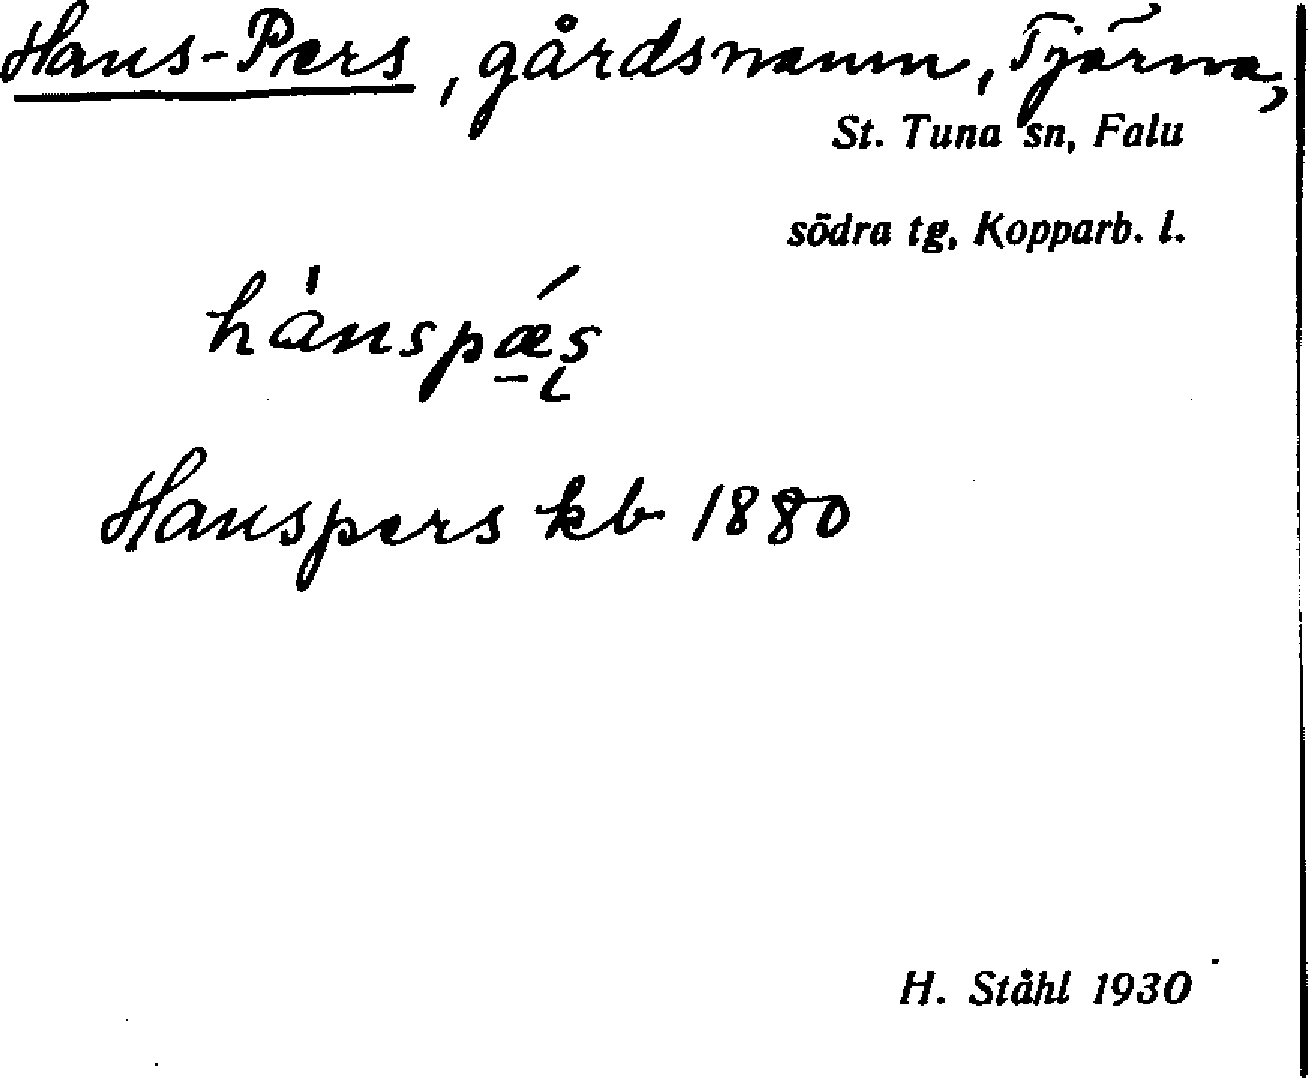 Hans-Pers, gårdsnamn, Tjärna,
St. Tuna sn, Falu
södra tg, Kopparb. l.
Hanspers kb 1880
H. Ståhl 1930